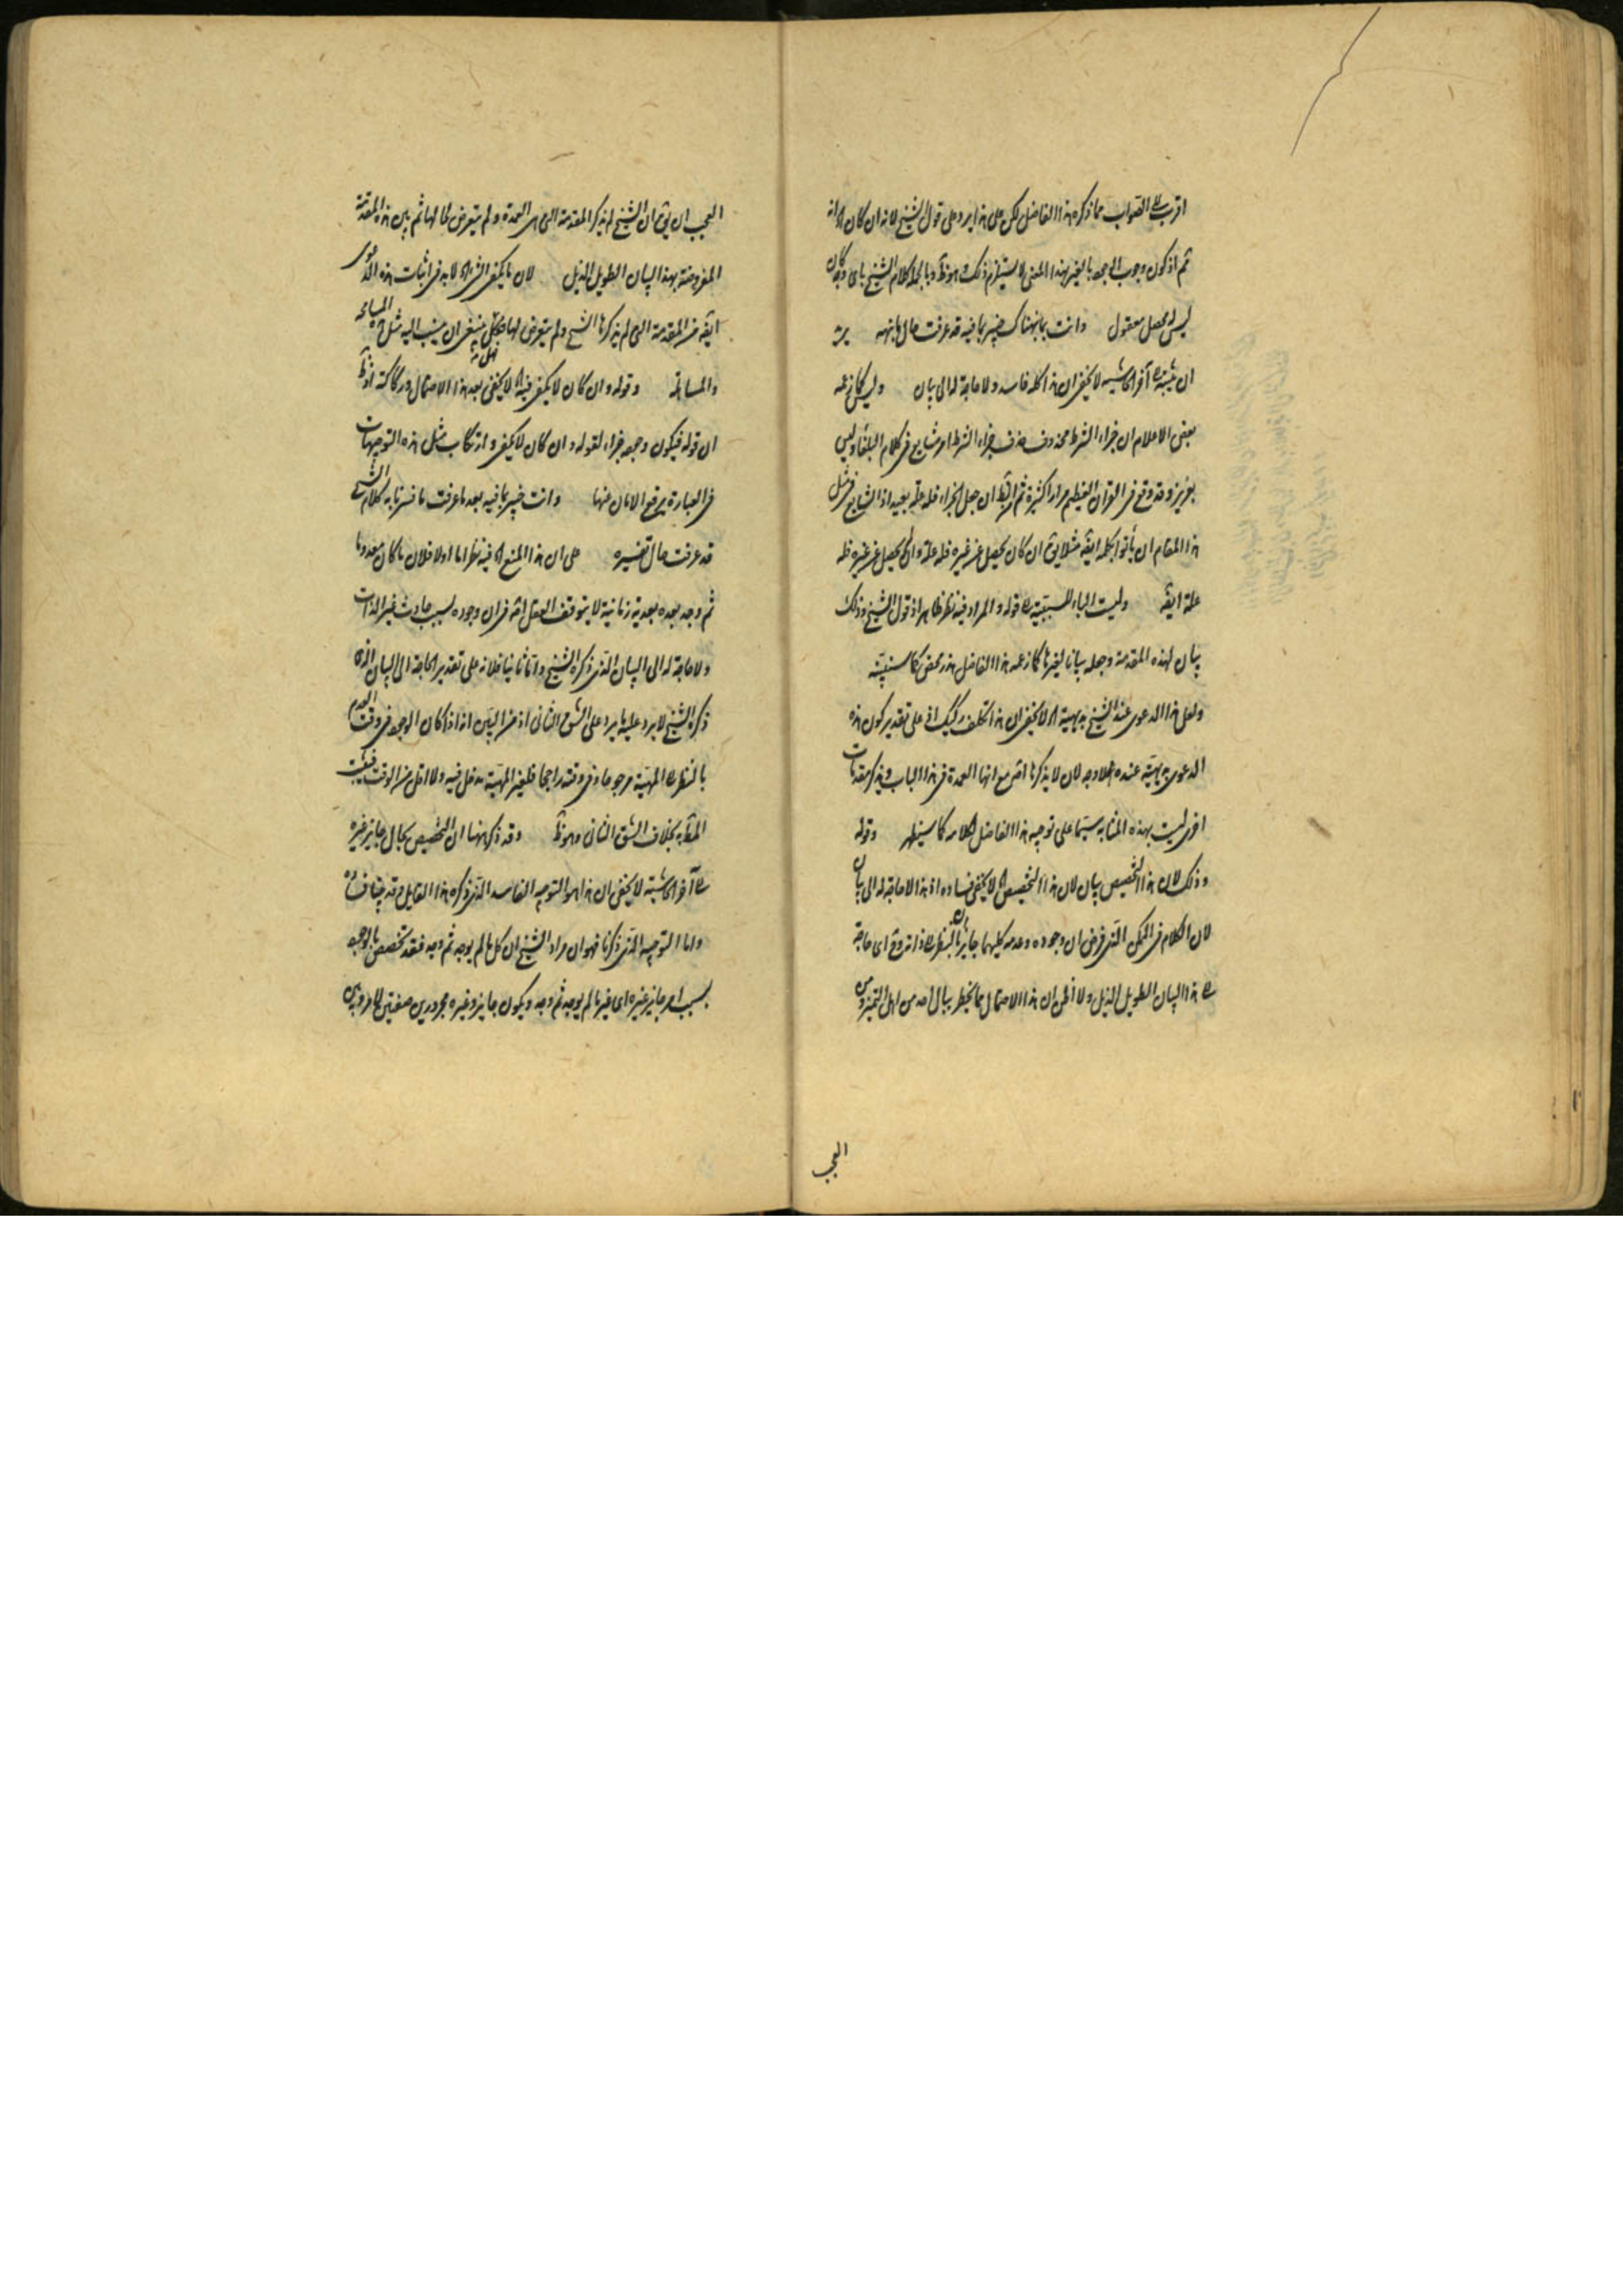 اقرب الى الصواب مما ذكره هذا الفاضل لكن على هذا يرد على قول الشيخ لانه ان كان
ثم اذ كون وجوب الوجود بالغير بهذا المعنى لا يستلزم ذلك وهو ظ وبالجملة كلام الشيخ باى وجه كان
ليس له محصل معقول وانت بما نبهناك خبير بما فيه قد عرفت حال ما نبهه
ان شئت الى آخر الحاشية لا يخفى ان هذا كله فاسد ولا حاجة له الى بيان وليس كما زعمه
بعض الاعلام ان جزاء الشرط محذوف حذف جزاء الشرط امر شايع فى كلام البلغاء وليس
بعزيز وقد وقع فى القران العظيم مرارا كثيرة ثم ان جعل الجزاء فله علة بعيد اذ الشايع فى مثل
هذا المقام ان يأتوا بكلمة ايضً مثلا يق ان كان يحصل عن غيره فله علة وان لم يحصل عن غيره فله
علة ايضً وليست الباء للسببية قوله والمراد فيه نظر ظاهر اذ قول الشيخ وذلك
بيان لهذه المقدمة وجعله بيانا لغيرها كما زعمه هذا الفاضل هذر محض كما سنبينه
ولعل هذا الدعوى عند الشيخ بديهية لا يخفى ان هذا تكلف ركيك اذ على تقدير كون هذه
الدعوى بديهية عنده فلا وجه لان لا يذكرها اصً مع انها العمدة فى هذا الباب ويذكر مقدمات
اخرى ليست بهذه المثابة سيما على توجيه هذا الفاضل لكلامه كما سيظهر وقوله
وذلك لان هذا التخصيص بيان لان هذا التخصيص لا يخفى فساده اذ هذا لا حاجة له الى بيان
لان الكلام فى الممكن الذى فرض ان وجوده وعدمه كليهما جايزان بالنظر الى ذاته وح اى حاجة
الى هذا البيان الطويل الذيل ولا اظن ان هذا الاحتمال مما يخطر ببال احد من اهل التميز ومن
العجب
العجب ان يق ان الشيخ لم يذكر المقدمة التى هى العمدة ولم يتعرض لحالها ثم بين هذه المقدمة
المفروضة بهذا البيان الطويل الذيل لان ما يكفى الشئ لا بد فى اثبات هذه الدعوى
ايضً من المقدمة التى لم يذكرها الشيخ ولم يتعرض لها فكيف ينبغى ان ينسب اليه مثل هذه المسامحه
والمساهلة وقوله وان كان لا يكفى فيه لا يخفى بعد هذا الاحتمال وركاكته اذ ظ
ان قوله فيكون وجوده جزاء لقوله وان كان لا يكفى وارتكاب مثل هذه التوجيهات
فى العبارة يرفع الامان عنها وانت خبير بما فيه بعد ما عرفت ما فسرنا به كلام الشيخ
قد عرفت حال تفسيره على ان هذا المنع فيه نظر اما اولا فلان ما كان معدوما
ثم وجد بعده بعدية زمانية لا يتوقف العقل اصً فى ان وجوده بسبب حادث غير الذات
ولا حاجة له الى البيان الذى ذكره الشيخ واما ثانيا فلانه على تقدير الحاجة الى البيان الذى
ذكره الشيخ لا يرد عليه ما يرد على الشق الثانى اذ من البين انه اذا كان الوجود فى وقت العدم
بالنظر الى المهية مرجوحا وفى وقته راجحا فلغير المهية مدخل فيه ولا اقل من الوقت فيثبت
المط به بخلاف الشق الثانى وهو ظ وقد ذكر ههنا ان التخصيص بحال جايز غيره
الى آخر الحاشية لا يخفى ان هذا هو التوجيه الفاسد الذى ذكره هذا القايل وقد بينا فساده
واما التوجيه الذى ذكرنا فهو ان مراد الشيخ ان كل ما لم يوجد ثم وجد فقد تخصص بالوجود
بسبب امر جايز غيره اى غير ما لم يوجد ثم وجد ويكون جايز وغيره مجرورين صفتين لامر